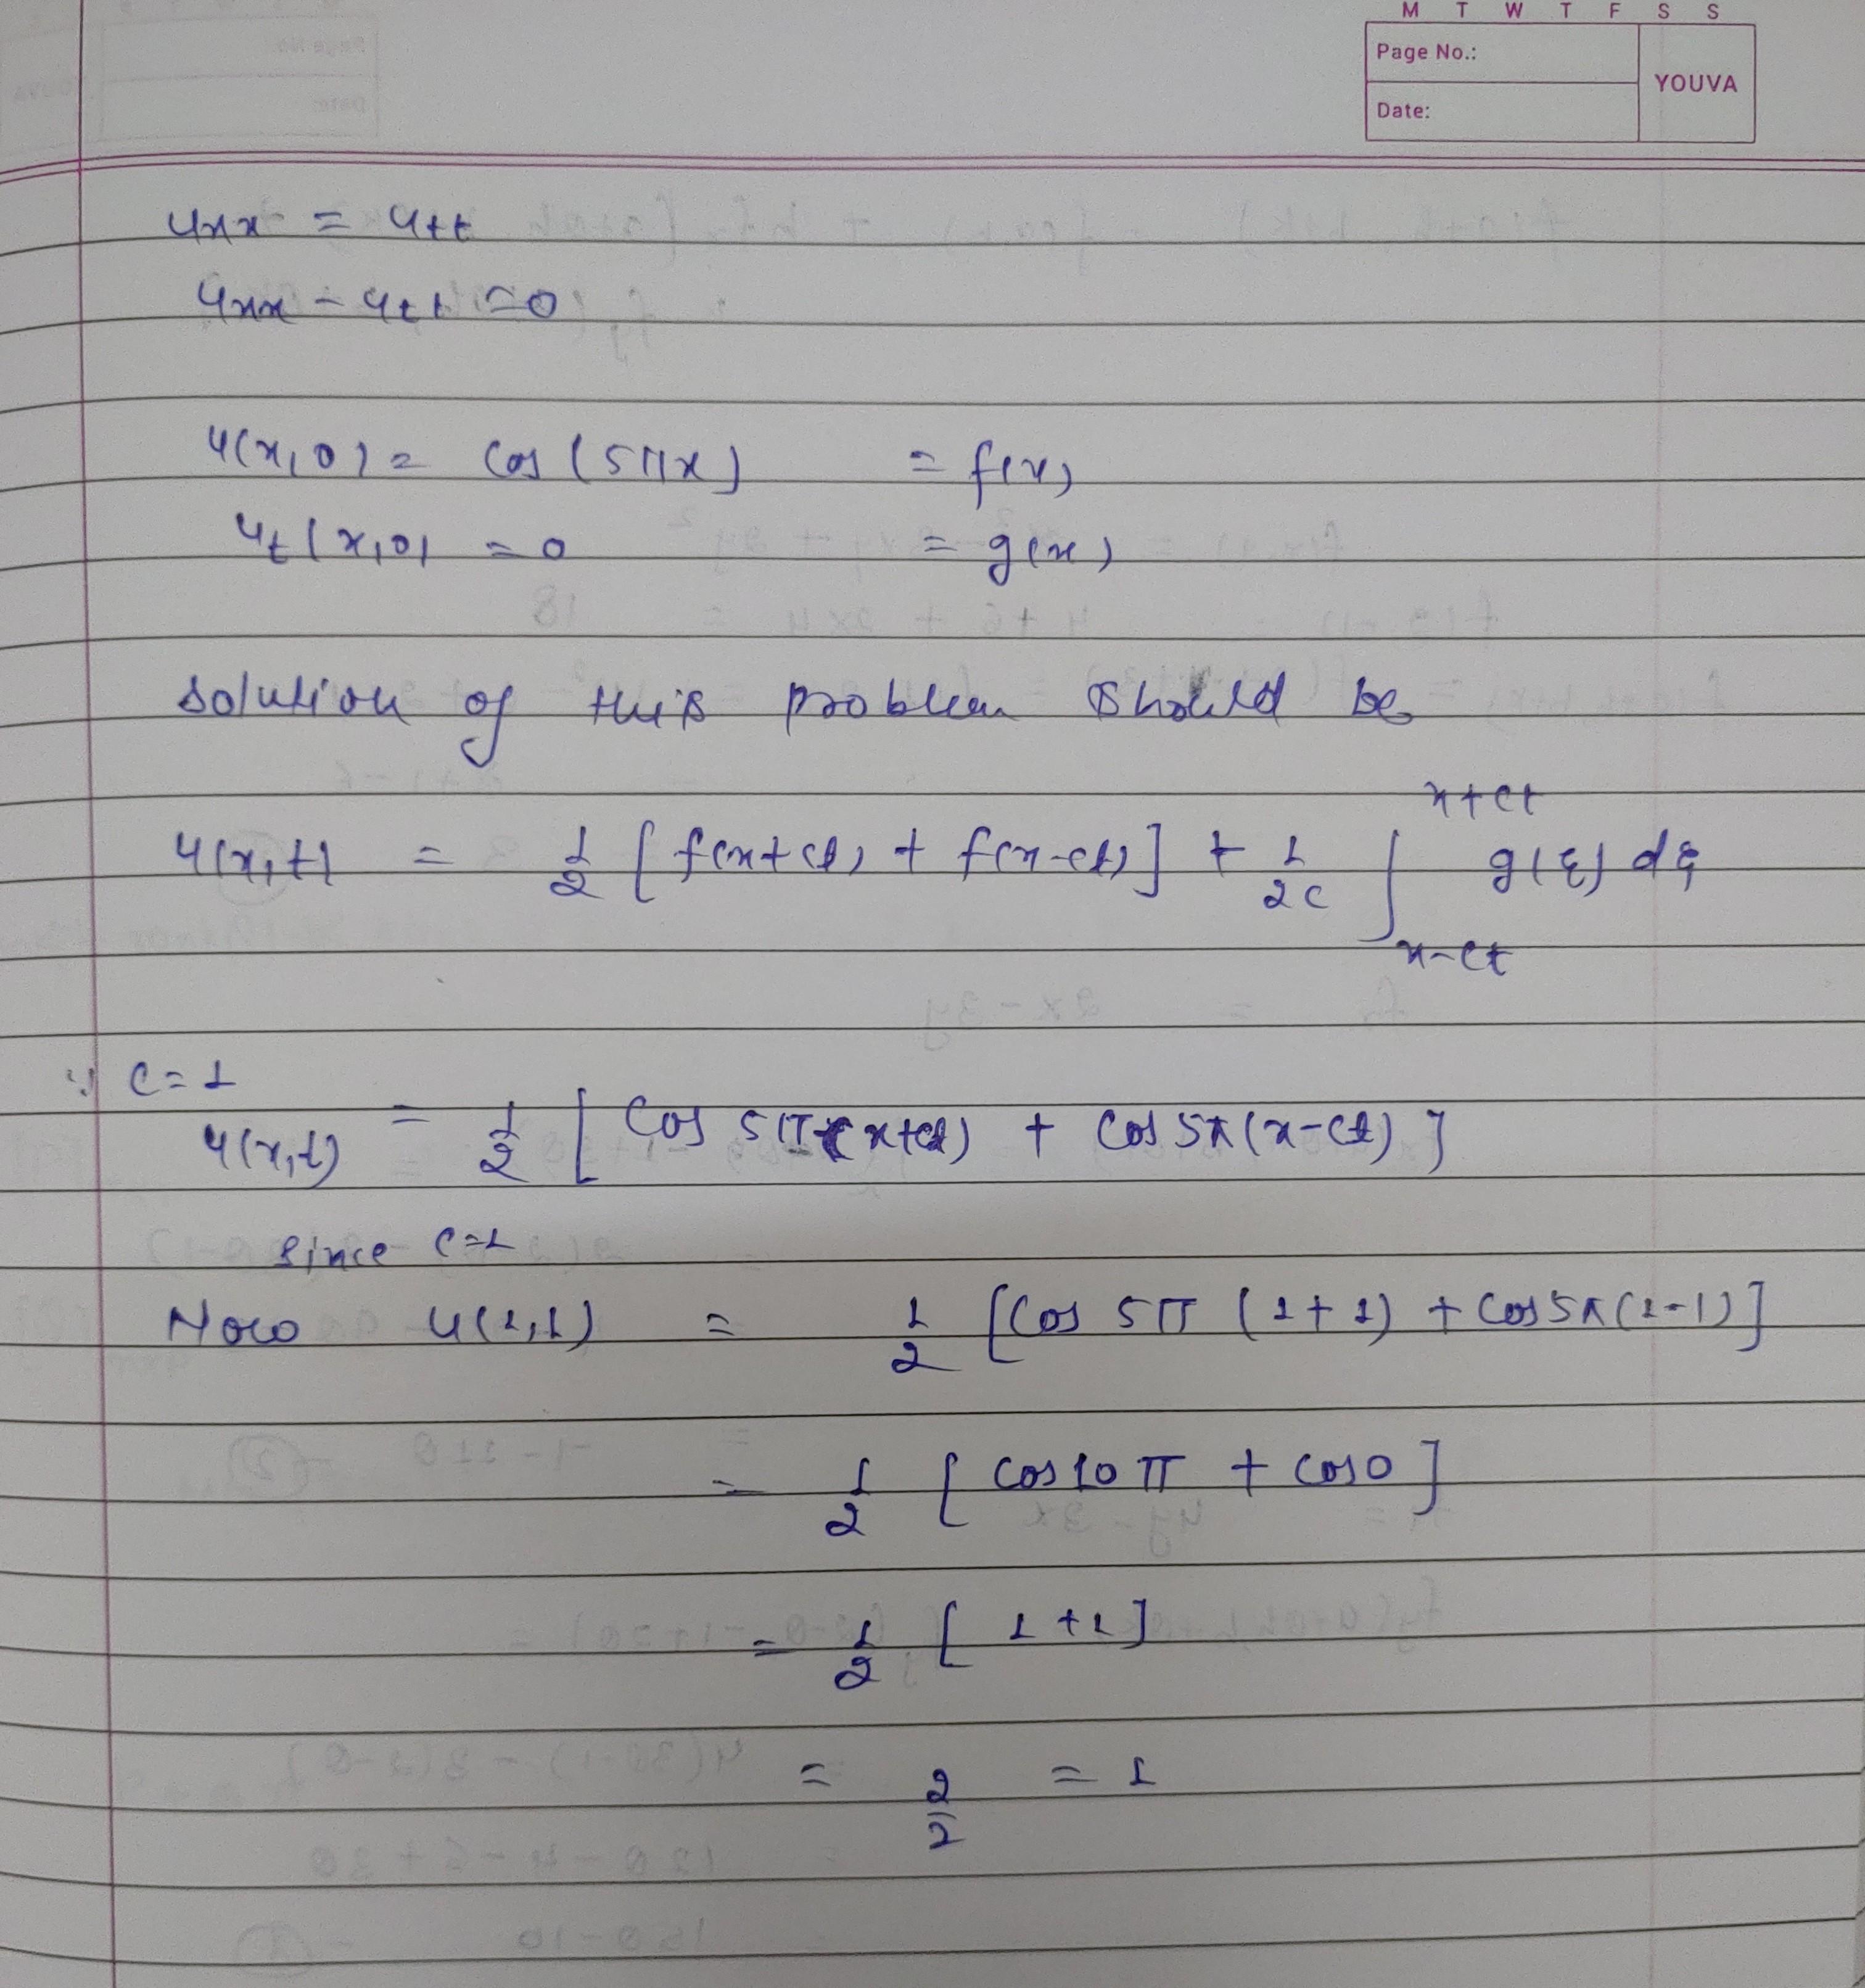 M T W T F S S
Page No.:
YOUVA
Date:
uxx = utt
uxx - utt = 0
u(x,0) = cos(5πx) = f(x)
ut(x,0) = 0 = g(x)
solution of this problem should be
u(x,t) = 1/2 [f(x+ct) + f(x-ct)] + 1/2c ∫_{x-ct}^{x+ct} g(ξ) dξ
∵ c=1
u(x,t) = 1/2 [cos 5π(x+ct) + cos 5π(x-ct)]
since c=1
Now u(1,1) = 1/2 [cos 5π (1+1) + cos 5π(1-1)]
= 1/2 [cos 10π + cos 0]
= 1/2 [1+1]
= 2/2 = 1